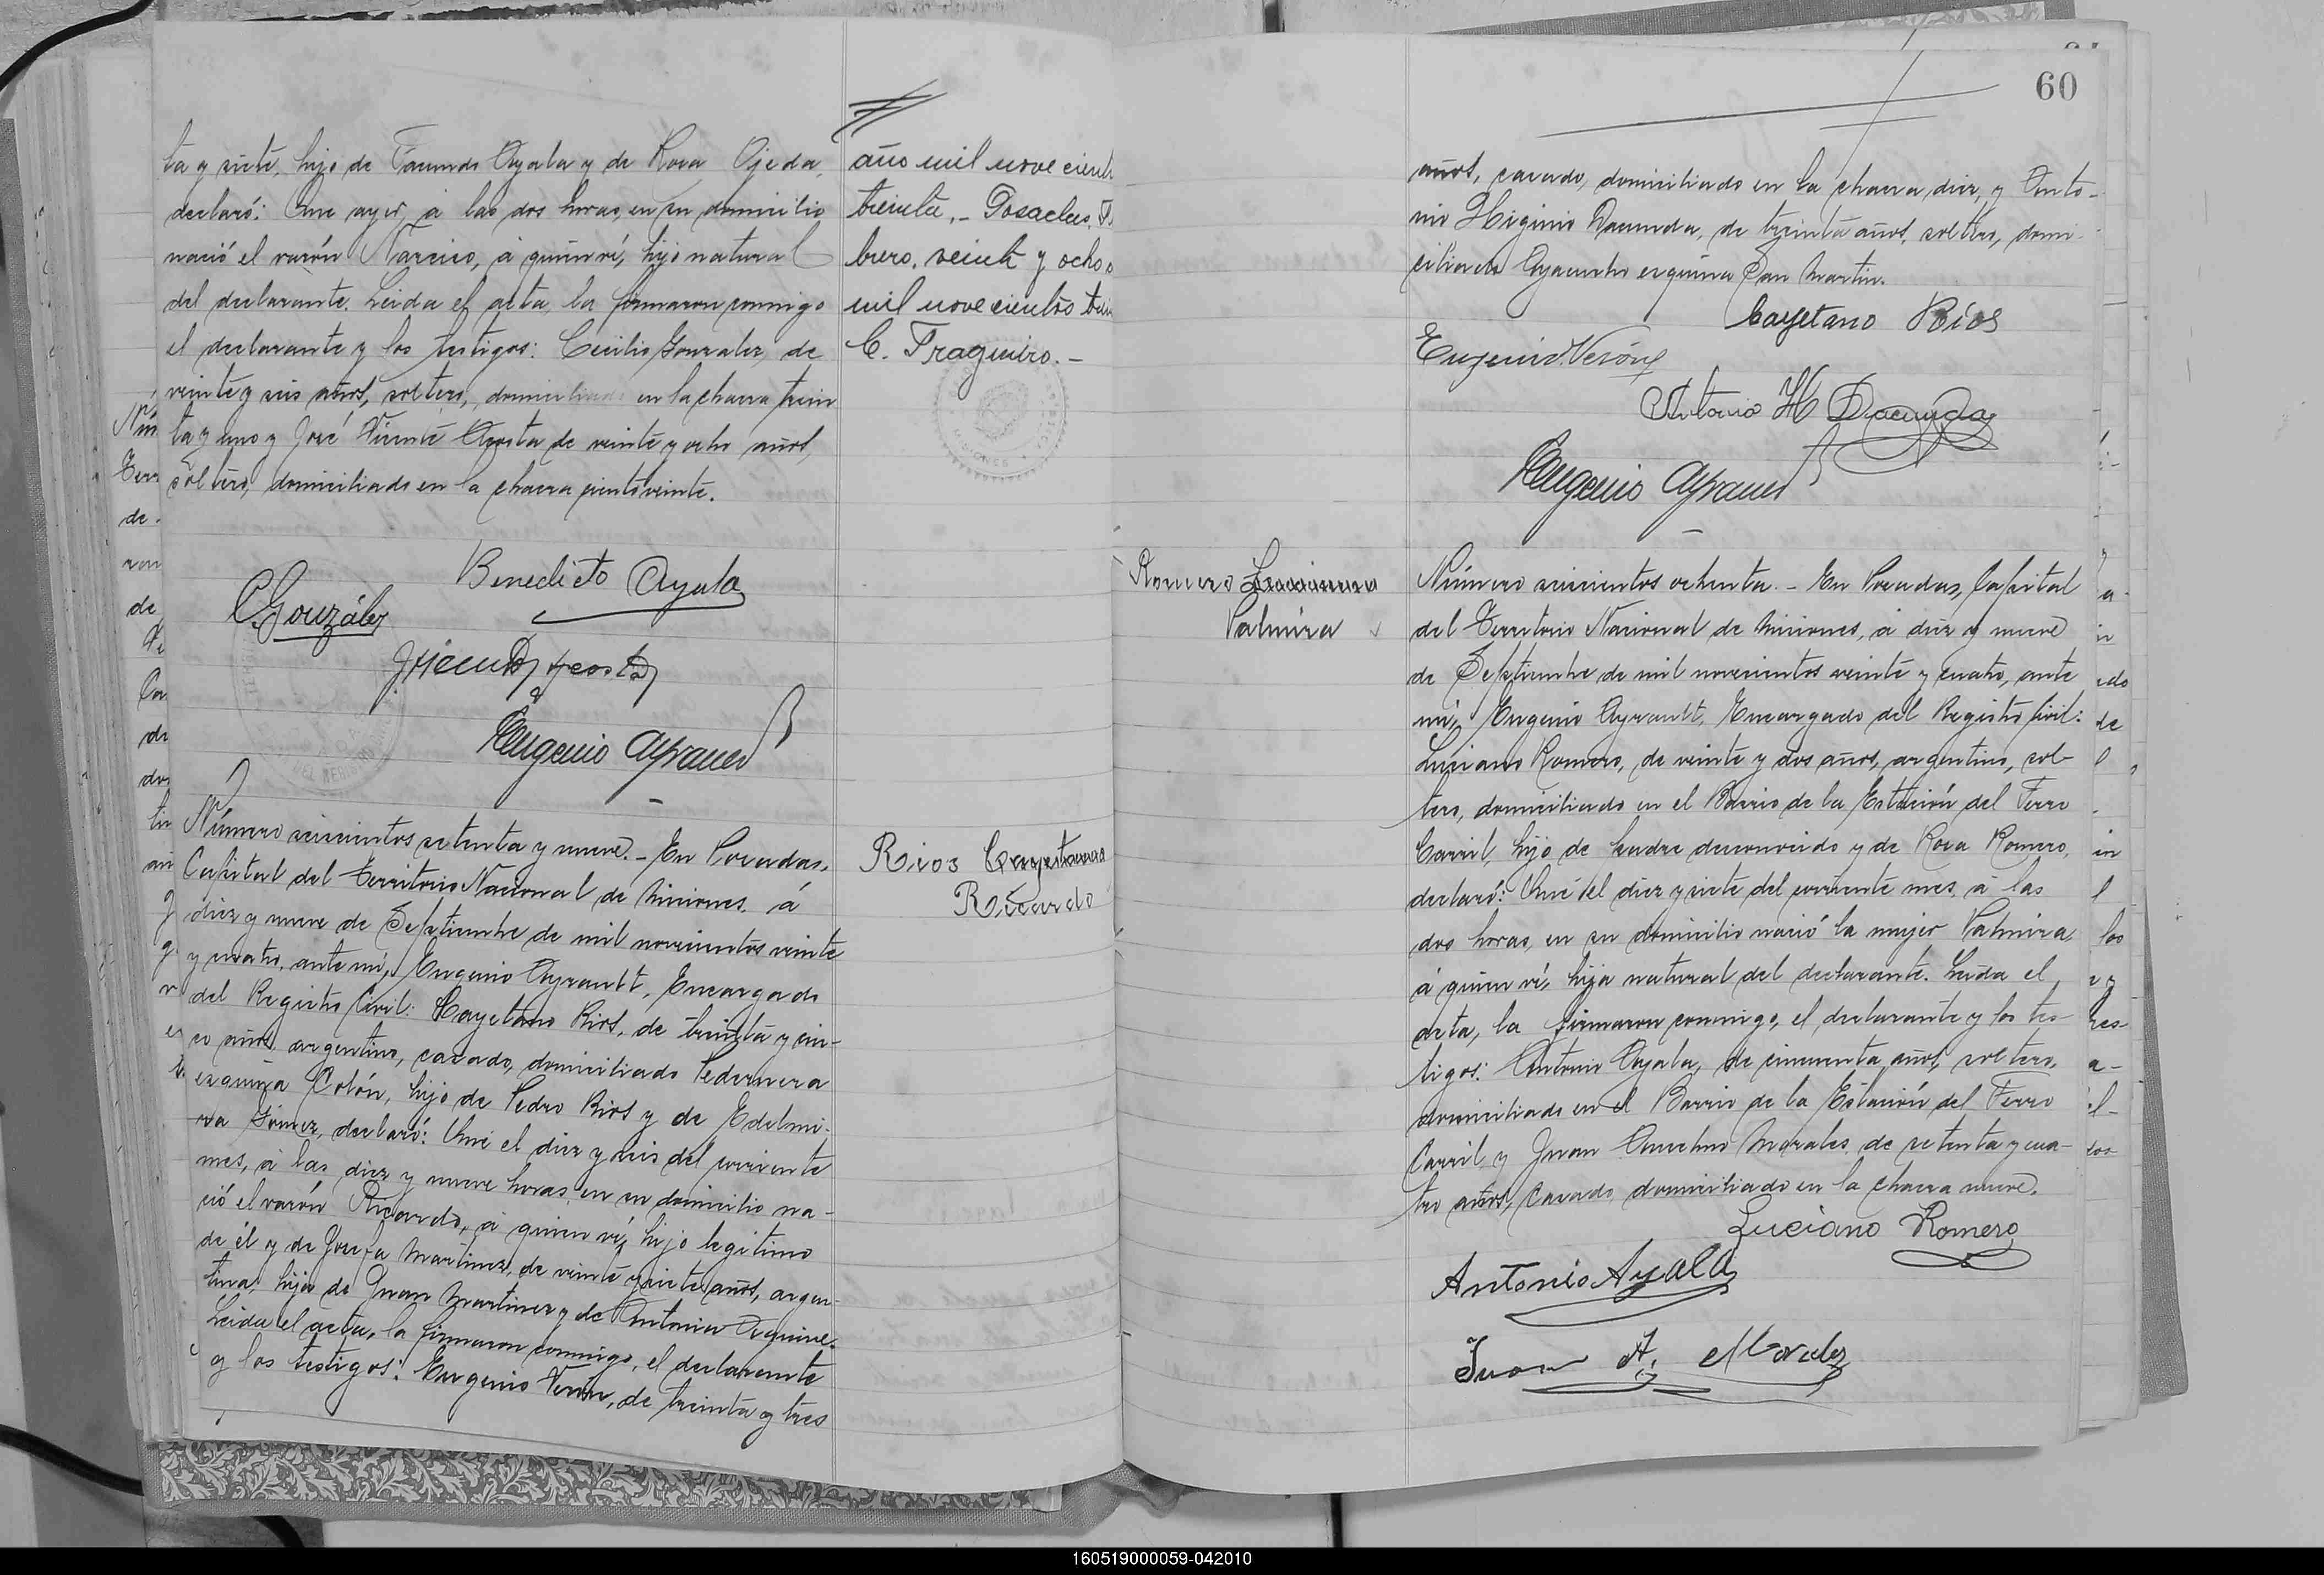 ta y siete, hijo de Facundo Ayala y de Rosa Ojeda,
declaró: Que ayer, á las dos horas, en su domicilio
nació el varón Narciso, á quien ví, hijo natural
del declarante. Leida el acta, la firmaron conmigo
el declarante y los testigos: Cecilio Gonzalez, de
veinte y seis años, soltero, domiciliado en la chacra trein
ta y uno y José Vicente Acosta de veinte y ocho años,
soltero, domiciliado en la chacra ciento veinte.
Benedicto Ayala
C. González
Eugenio Ayrault
Número seiscientos setenta y nueve. - En Posadas,
Capital del Territorio Nacional de Misiones, á
diez y nueve de Septiembre de mil novecientos veinte
y cuatro, ante mí, Eugenio Ayrault, Encargado
del Registro Civil: Cayetano Rios, de treinta y cin-
co años, argentino, casado, domiciliado Pedernera
esquina Colón, hijo de Pedro Rios y de Edelmi-
ra Gómez, declaró: Que el diez y seis del corriente
mes, á las diez y nueve horas, en su domicilio na-
ció el varón Ricardo, á quien ví, hijo legítimo
de él y de Josefa Martinez, de veinte y siete años, argen-
tina, hija de Juan Martinez y de Antonia
Leida el acta, la firmaron conmigo, el declarante
y los testigos: Eugenio Verón, de treinta y tres
año mil nove cient
treinta. - Posadas,
brero, veinte y ocho
mil nove cientos
C. Fragueiro. -
MISIONES
Rios Cayetano
Ricardo
60
años, casado, domiciliado en la chacra diez, y Anto-
nio Higinio Dacunda, de treinta años, soltero, domi-
ciliado Ayacucho esquina San Martin.
Cayetano Ríos
Eugenio Verón
Antonio H Dacunda
Eugenio Ayrault
Romero
Palmira
Número seiscientos ochenta. - En Posadas, Capital
del Territorio Nacional de Misiones, á diez y nueve
de Septiembre de mil novecientos veinte y cuatro, ante
mí, Eugenio Ayrault, Encargado del Registro Civil:
Luciano Romero, de veinte y dos años, argentino, sol-
tero, domiciliado en el Barrio de la Estación del Ferro
Carril, hijo de padre desconocido y de Rosa Romero,
declaró: Que el diez y siete del corriente mes, á las
dos horas, en su domicilio nació la mujer Palmira,
á quien ví, hija natural del declarante. Leida el
acta, la firmaron conmigo, el declarante y los tes-
tigos: Antonio Ayala, de cincuenta años, soltero,
domiciliado en el Barrio de la Estación del Ferro
Carril, y Juan Anselmo Morales, de setenta y cua-
tro años, casado, domiciliado en la chacra nueve.
Luciano Romero
Antonio Ayala
Juan A. Morales
160519000059-042010